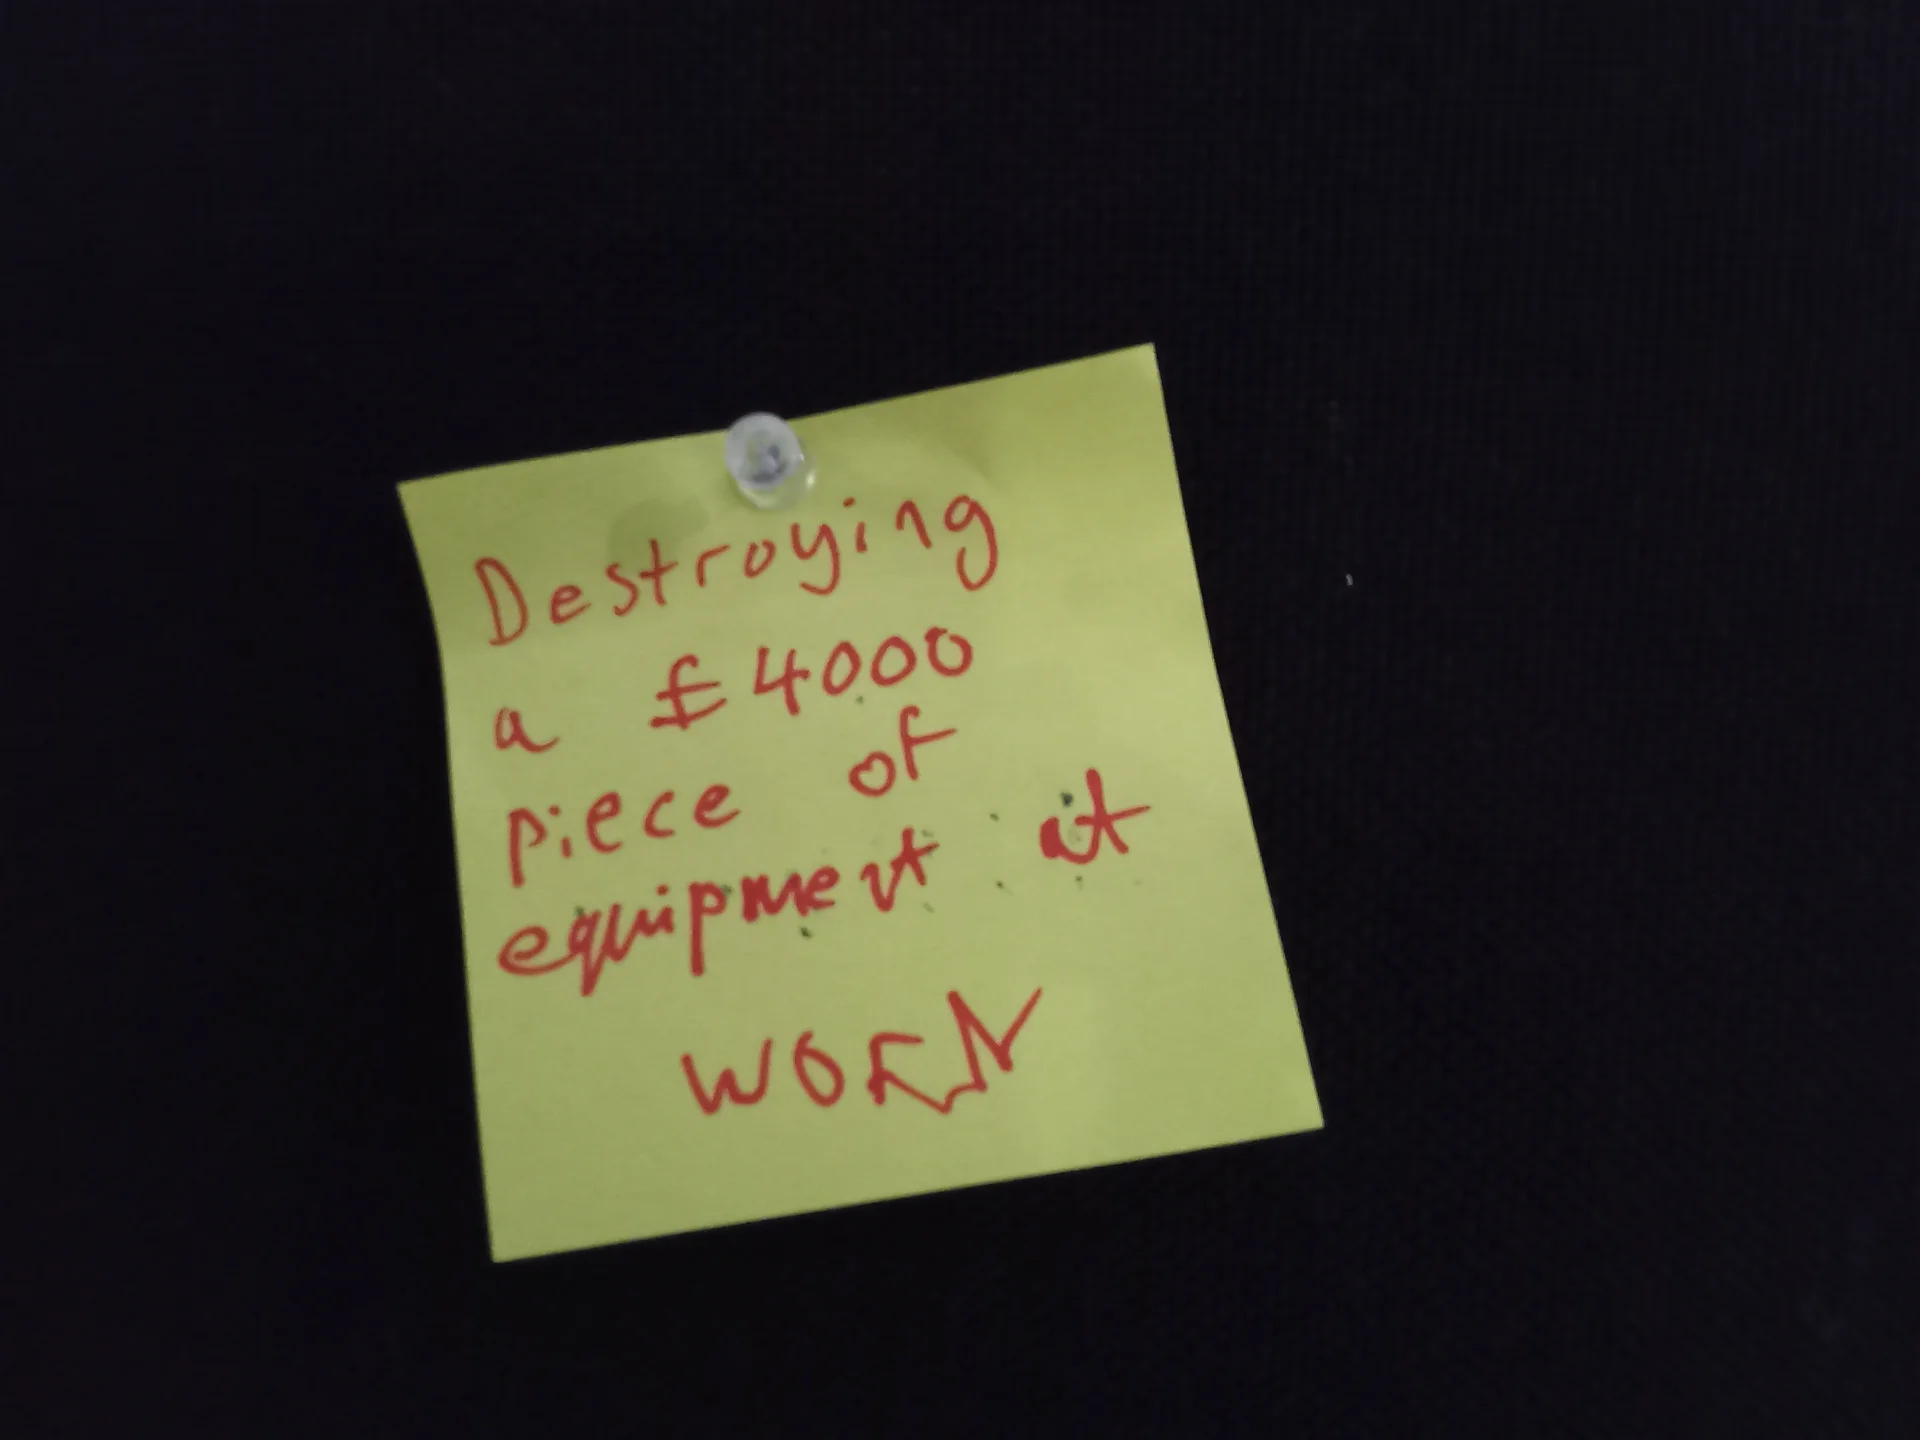 Destroying
a £4000
piece of
equipment at
work